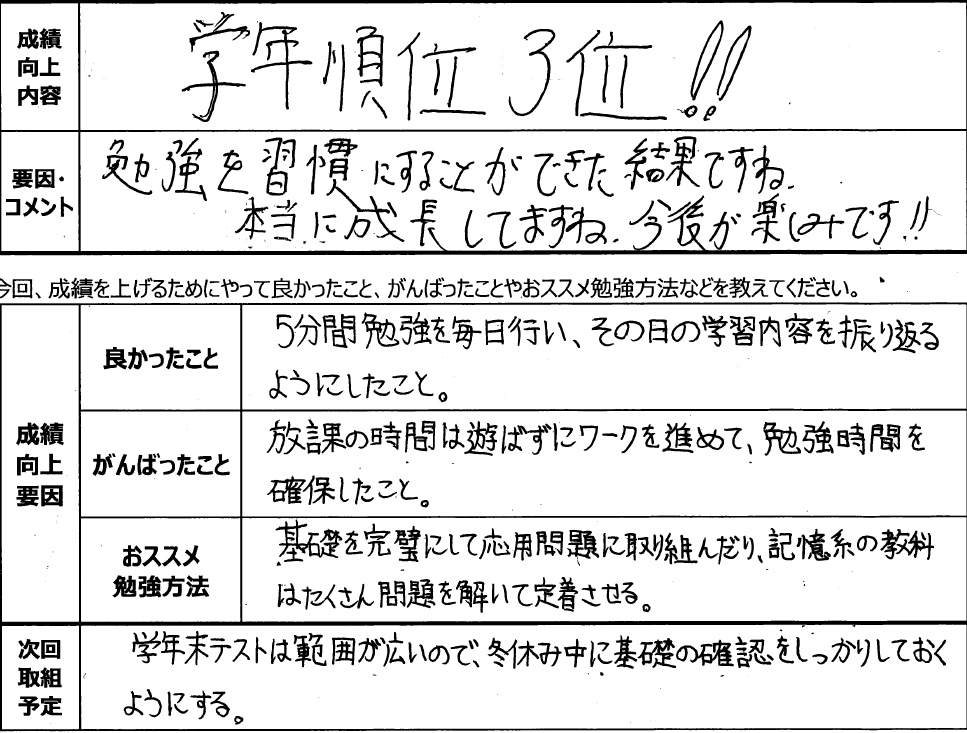 成績
向上
内容
学年順位 3位!!
要因・
コメント
勉強を習慣にすることができた結果ですね.
本当に成長してますね. 今後が楽しみです!!
今回、成績を上げるためにやって良かったこと、がんばったことやおススメ勉強方法などを教えてください。
成績
向上
要因
良かったこと
5分間勉強を毎日行い、その日の学習内容を振り返る
ようにしたこと。
がんばったこと
放課の時間は遊ばずにワークを進めて、勉強時間を
確保したこと。
おススメ
勉強方法
基礎を完璧にして応用問題に取り組んだり、記憶系の教科
はたくさん問題を解いて定着させる。
次回
取組
予定
学年末テストは範囲が広いので、冬休み中に基礎の確認をしっかりしておく
ようにする。